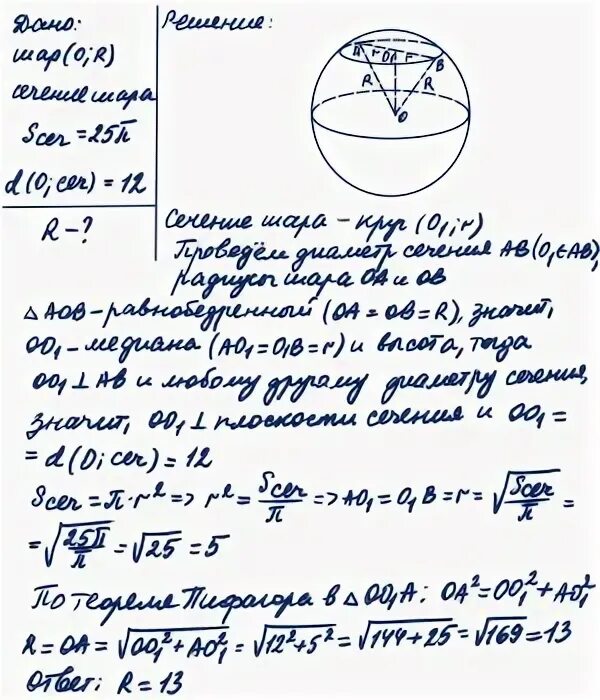 Дано:
шар (O; R)
сечение шара
Sсеч = 25π
d(O; сеч) = 12
R – ?
Решение:
A r O₁ r B
R R
O
Сечение шара – круг (O₁; r)
Проведём диаметр сечения AB (O₁ ∈ AB),
радиусы шара OA и OB
△ AOB – равнобедренный (OA = OB = R), значит,
OO₁ – медиана (AO₁ = O₁B = r) и высота, тогда
OO₁ ⊥ AB и любому другому диаметру сечения,
значит, OO₁ ⊥ плоскости сечения и OO₁ =
= d(O; сеч) = 12
Sсеч = π · r² => r² = Sсеч/π => AO₁ = O₁B = r = √(Sсеч/π) =
= √(25π/π) = √25 = 5
По теореме Пифагора в △ OO₁A: OA² = OO₁² + AO₁²
R = OA = √(OO₁² + AO₁²) = √(12² + 5²) = √(144 + 25) = √169 = 13
Ответ: R = 13